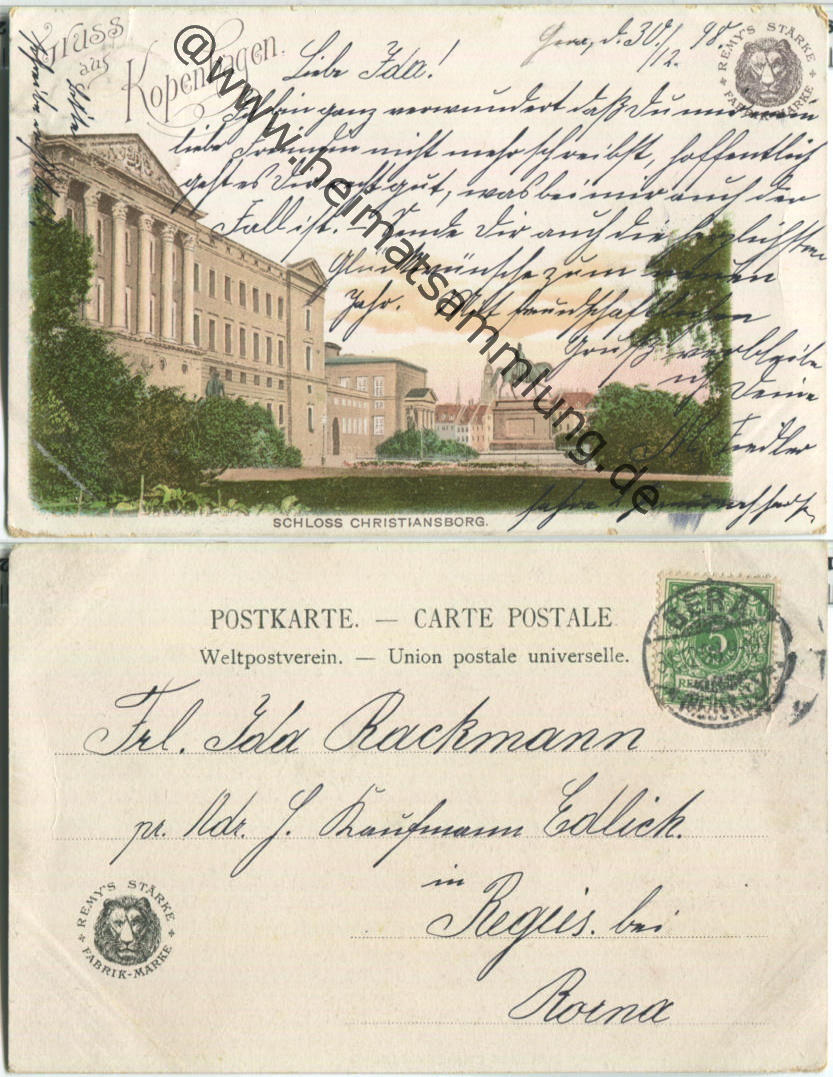 Gruss
aus
Kopenhagen.
Gera, d. 30./12. 98.
REMY'S STÄRKE
FABRIK-MARKE
Liebe Ida!
Ich bin ganz verwundert daß Du mir
liebe Freundin nicht mehr schreibst, hoffentlich
geht es Dir recht gut, was bei mir auch der
Fall ist. Sende Dir auch die herzlichsten
Glückwünsche zum neuen
Jahr. Mit freundschaftlichem
Gruß verbleibe
ich Deine
M. Fiedler
Bitte
SCHLOSS CHRISTIANSBORG.
@www.heimatsammlung.de
POSTKARTE. — CARTE POSTALE
Weltpostverein. — Union postale universelle.
GERA
5
Frl. Ida Rackmann
pr. Adr. H. Kaufmann Edlich.
in
Regis. bei
Borna
REMY'S STÄRKE
FABRIK-MARKE